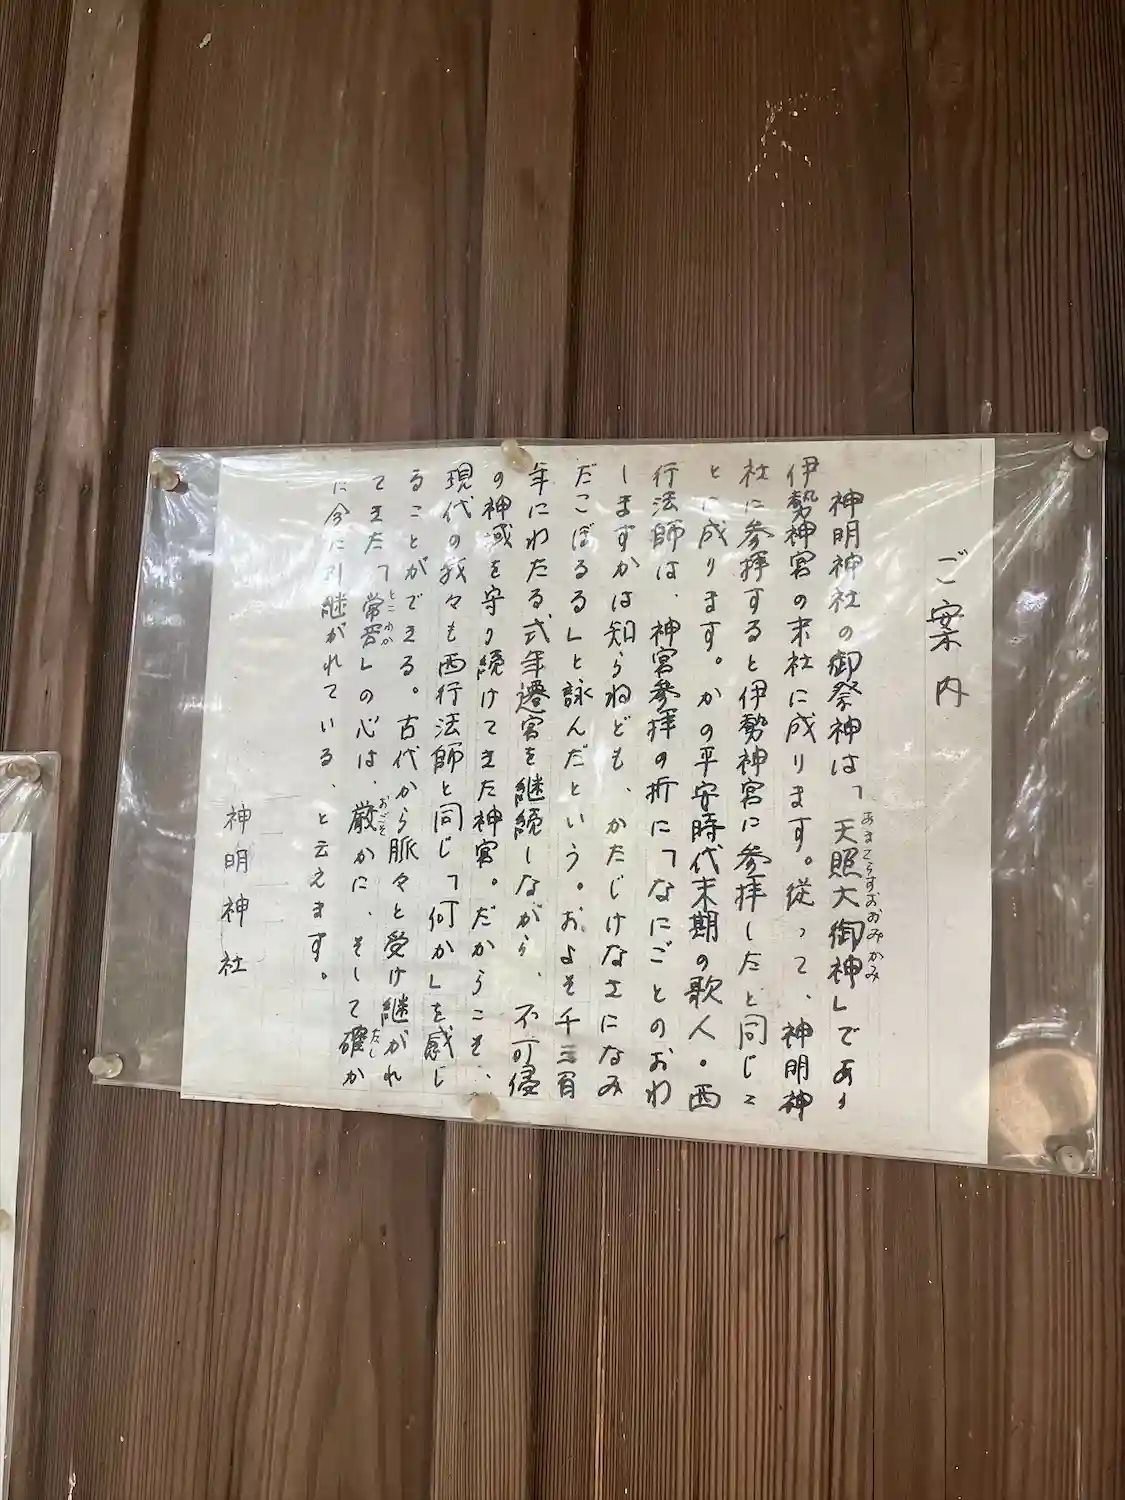 ご案内
神明神社の御祭神は「天照大御神」であり
あまてらすおおみかみ
伊勢神宮の末社に成ります。従って、神明神
社に参拝すると伊勢神宮に参拝したと同じこ
とに成ります。かの平安時代末期の歌人・西
行法師は、神宮参拝の折に「なにごとのおわ
しますかは知らねども、かたじけなさになみ
だこぼるる」と詠んだという。およそ千三百
年にわたる式年遷宮を継続しながら、不可侵
の神域を守り続けてきた神宮。だからこそ、
現代の我々も西行法師と同じ「何か」を感じ
ることができる。古代から脈々と受け継がれ
てきた「常若」の心は、厳かに、そして確か
とこわか
おごそ
たし
に今に引継がれている、と云えます。
神明神社